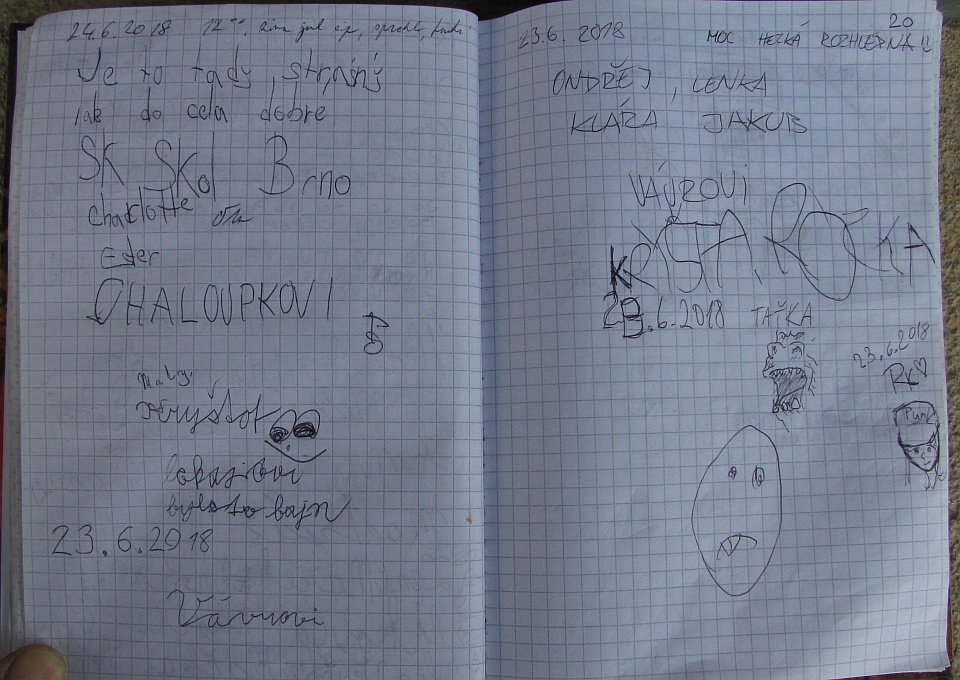 24.6.2018
Je to tady strašný
jak do cela dobre
SK Skol Brno
Charlotte
Ester
CHALOUPKOVI
malý
Kryštof
bylo to bajn
23.6.2018
Vávrovi
20
23.6. 2018 MOC HEZKÁ ROZHLEDNA !!
ONDŘEJ, LENKA
KLÁRA JAKUB
VÁJROVI
KRIŠTA
23.6.2018 TAŤKA
23.6.2018
RK♡
Punk